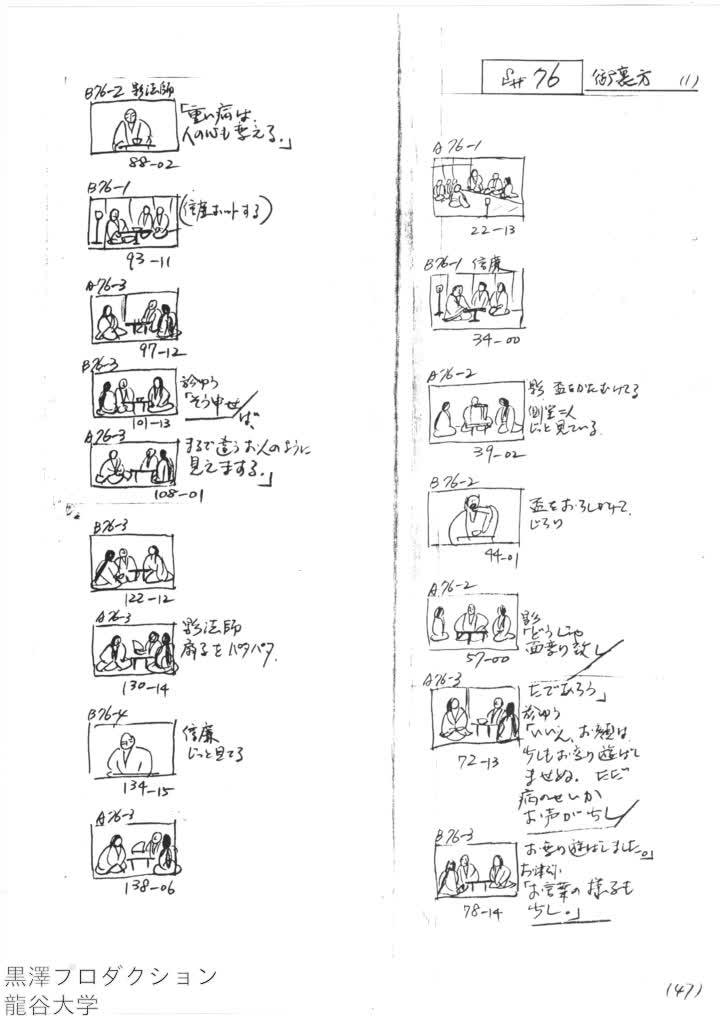 S# 76 御裏方 (1)
A76-1
22-13
B76-1 信廉
34-00
A76-2
影 盃をかたむけてる
側室二人
じっと見ている
39-02
B76-2
盃をおろしかけて
じろり
44-01
A76-2
影
「どうじゃ
面変り致し
57-00
A76-3
たであろう」
於ゆう
「いいえ、お顔は
少しもお変り遊ばし
ませぬ。ただ
病のせいか
お声が少し
72-13
B76-3
お変り遊ばしました。」
お津弥
「お言葉の様子も
少し。」
78-14
B76-2 影法師
「重い病は、
人の心も変える。」
88-02
B76-1
(信廉ホットする)
93-11
A76-3
97-12
B76-3
於ゆう
「そう申せ
ば、
101-13
A76-3
まるで違うお人のように
見えまする。」
108-01
B76-3
122-12
A76-3
影法師
扇子をパタパタ
130-14
B76-4
信廉
じっと見てる
134-15
A76-3
138-06
(47)
黒澤プロダクション
龍谷大学